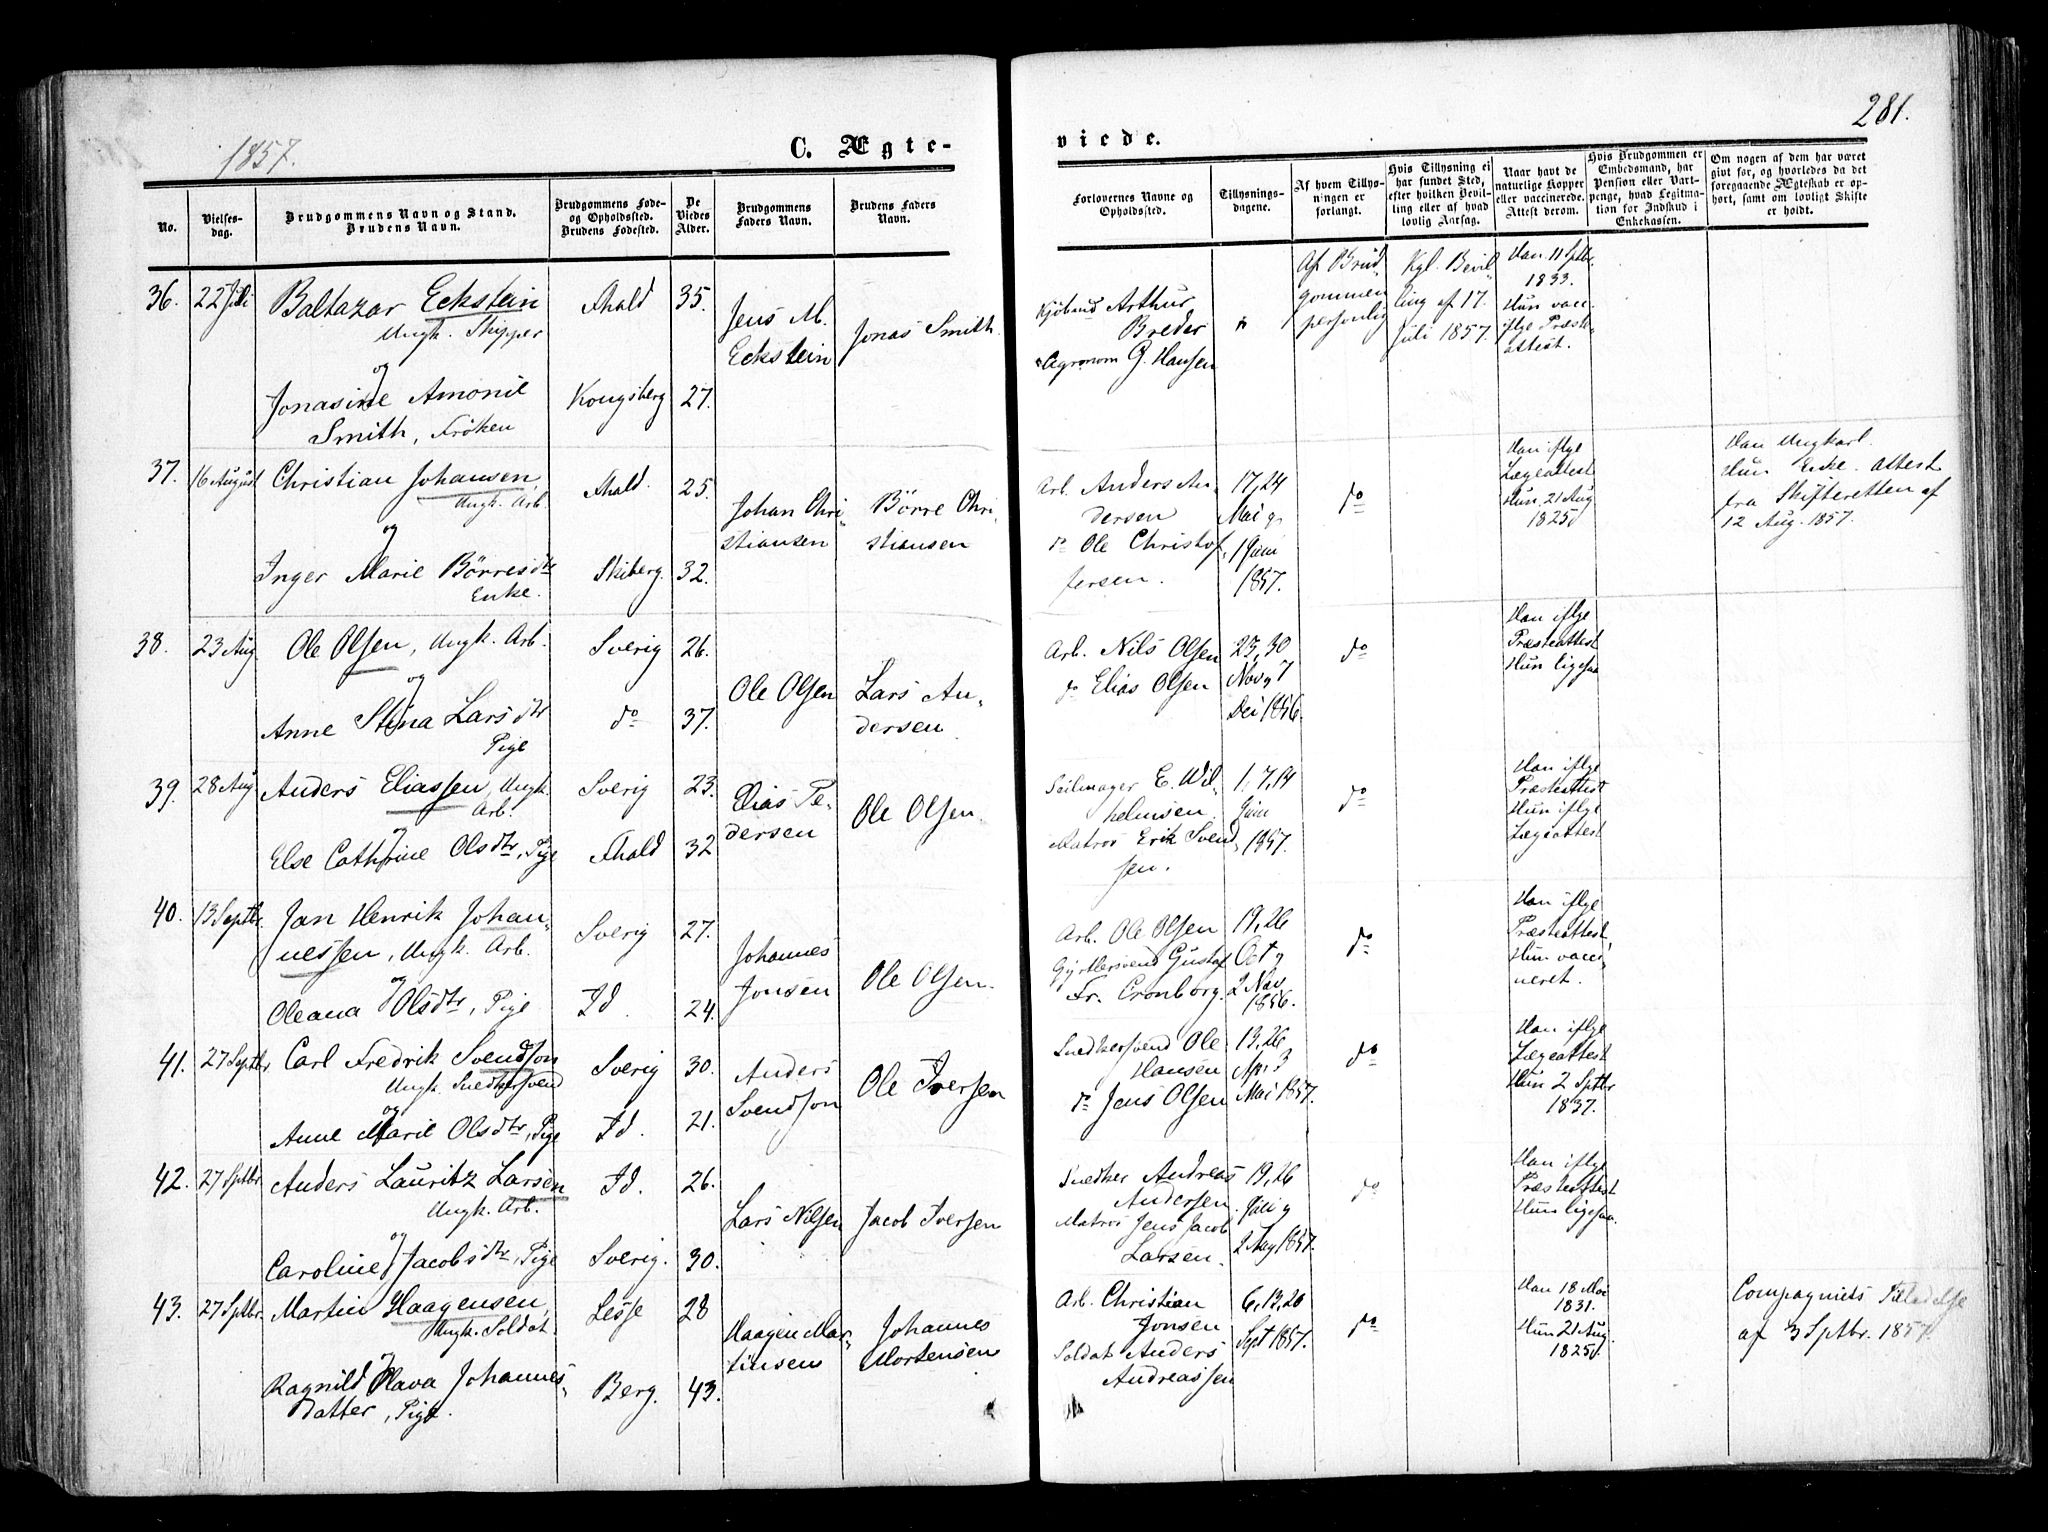 1857.
C. Ægte-
No.
Vielses-
dag.
Brudgommens Navn og Stand.
Brudens Navn.
Brudgommens Føde-
og Opholdssted.
Brudens Fødested.
De
Viedes
Alder.
Brudgommens
Faders Navn.
Brudens Faders
Navn.
36.
22 Juli
Baltazar Eckstein
Ungk. Skipper
og
Jonasine Amonie
Smith, Frøken
Fhald
Kongsberg
35.
27.
Jens M.
Eckstein
Jonas Smith.
37.
16 August
Christian Johansen,
Ungk. Arb.
og
Inger Marie Börresdtr
Enke.
Fhald.
Skiberg.
25.
32.
Johan Chri-
stiansen
Börre Chri-
stiansen
38.
23 Aug
Ole Olsen, Ungk. Arb.
og
Anne Stina Larsdtr
Pige
Sverig
do
26.
37.
Ole Olsen
Lars An-
dersen
39.
28 Aug.
Anders Eliassen, Ungk.
Arb.
og
Else Cathrine Olsdtr, Pige
Sverig
Fhald
23.
32
Elias Pe-
dersen
Ole Olsen.
40.
13 Septbr.
Jan Henrik Johan-
nessen, Ungk. Arb.
og
Oleana Olsdtr, Pige
Sverig
Id.
27.
24.
Johannes
Jonsen
Ole Olsen.
41.
27 Septbr
Carl Fredrik Svendson
Ungk. Snedkersvend
og
Anne Marie Olsdtr, Pige
Sverig
Id.
30.
21.
Anders
Svendson
Ole Iversen
42.
27 Sptbr.
Anders Lauritz Larsen
Ungk. Arb.
og
Caroline Jacobsdtr, Pige
Id.
Sverig.
26.
30.
Lars Nilsen
Jacob Iversen
43.
27 Sptbr.
Martin Haagensen,
Ungk. Soldat
og
Ragnild Olava Johannes-
datter, Pige.
Lesje
Berg.
28
43.
Haagen Mar-
tinsen
Johannes
Mortensen
281.
viede.
Forlovernes Navne og
Opholdssted.
Tillysnings-
dagene.
Af hvem Tillys-
ningen er
forlangt.
Hvis Tillysning ei
har fundet Sted,
efter hvilken Bevil-
ling eller af hvad
lovlig Aarsag.
Naar havt de
naturlige Kopper
eller vaccinerede.
Attest derom.
Hvis Brudgommen er
Embedsmand, har
Pension eller Vart-
penge, hvad Legitma-
tion for Indskud i
Enkekassen.
Om nogen af dem har været
givt før, og hvorledes da det
foregaaende Ægteskab er op-
hørt, samt om lovligt Skifte
er holdt.
Kjöbmd Arthur
Breder
Agronom G. Hansen
Af Brud-
gommen
personlig
Kgl. Bevil-
ling af 17.
Juli 1857.
Han 11 Sptbr.
1833.
Hun vacc.
iflge Præste-
attest.
Arb. Anders An-
dersen
do Ole Christof-
fersen.
17, 24
Mai og
1 Juni
1857.
do
Han iflge
Lægeattest
Hun 21 Aug
1825
Han Ungkarl.
Hun Enke. Attest
fra Skifteretten af
12 Aug. 1857.
Arb. Nils Olsen
do Elias Olsen
23, 30
Nov. og 7
Dec 1856.
do
Han iflge
Præsteattest
Hun ligesaa
Seilmager E. Wil-
helmsen.
Matros Erik Svend-
sen.
1, 7, 14
Juni
1857.
do
Han iflge
Præsteattest
Hun iflge
Lægeattest
Arb. Ole Olsen
Gjörtlersvend Gustaf
Fr. Cronborg.
19, 26
Oct og
2 Nov
1856.
do
Han iflge
Præsteattest,
Hun vacci-
neret.
Snedkersvend Ole
Hansen
do Jens Olsen
19, 26
Ap. 3
Mai 1857.
do
Han iflge
Lægeattest
Hun 2 Sptbr
1837.
Snedker Andreas
Andersen.
Matros Jens Jacob
Larsen.
19, 26
Juli og
2 Aug 1857.
do
Han iflge
Præsteattest
Hun ligesaa.
Arb. Christian
Jonsen
Soldat Anders
Andreassen
6, 13, 20
Sept 1857.
do
Han 18 Mai
1831.
Hun 21 Aug.
1825.
Compagniets Tilladelse
af 3 Sptbr. 1857